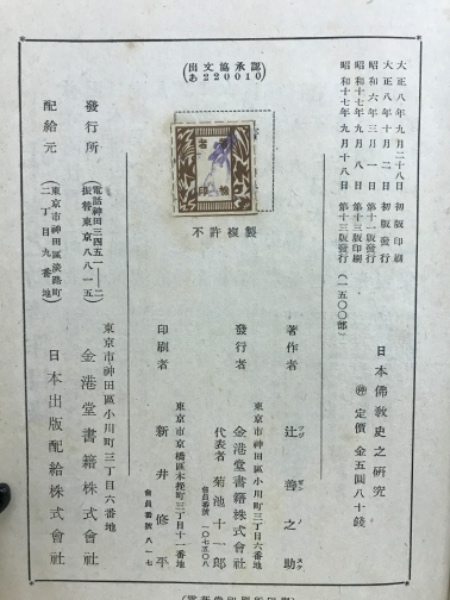 大正八年九月二十八日　初版印刷
大正八年十月二日　初版發行
昭和六年三月一日　第十一版發行
昭和十七年九月八日　第十三版印刷
昭和十七年九月十八日　第十三版發行（一五〇〇部）
日本佛教史之研究
㊞ 定價 金五圓八十錢
（出文協承認
あ220010）
著者
檢印
不許複製
著作者　辻善之助
ツジ　ゼンノスケ
發行者
東京市神田區小川町三丁目六番地
金港堂書籍株式會社
代表者　菊池十一郎
會員番號　一〇七五〇八
印刷者
東京市京橋區木挽町三丁目十一番地
新井修平
會員番號　八一七
發行所
東京市神田區小川町三丁目六番地
金港堂書籍株式會社
（電話神田三四五一―二
振替東京八八一五）
配給元
（東京市神田區淡路町
二丁目九番地）
日本出版配給株式會社